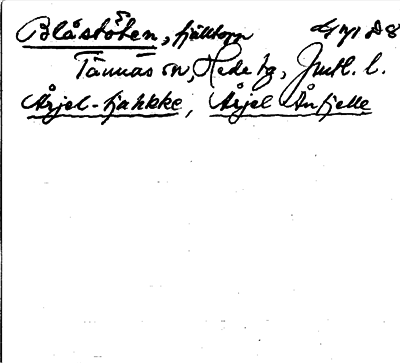 Blåstöten, fjälltopp
Tännäs sn, Hede tg, Jmtl. l.
Årjel-tjahkke, Årjel Ånfjelle